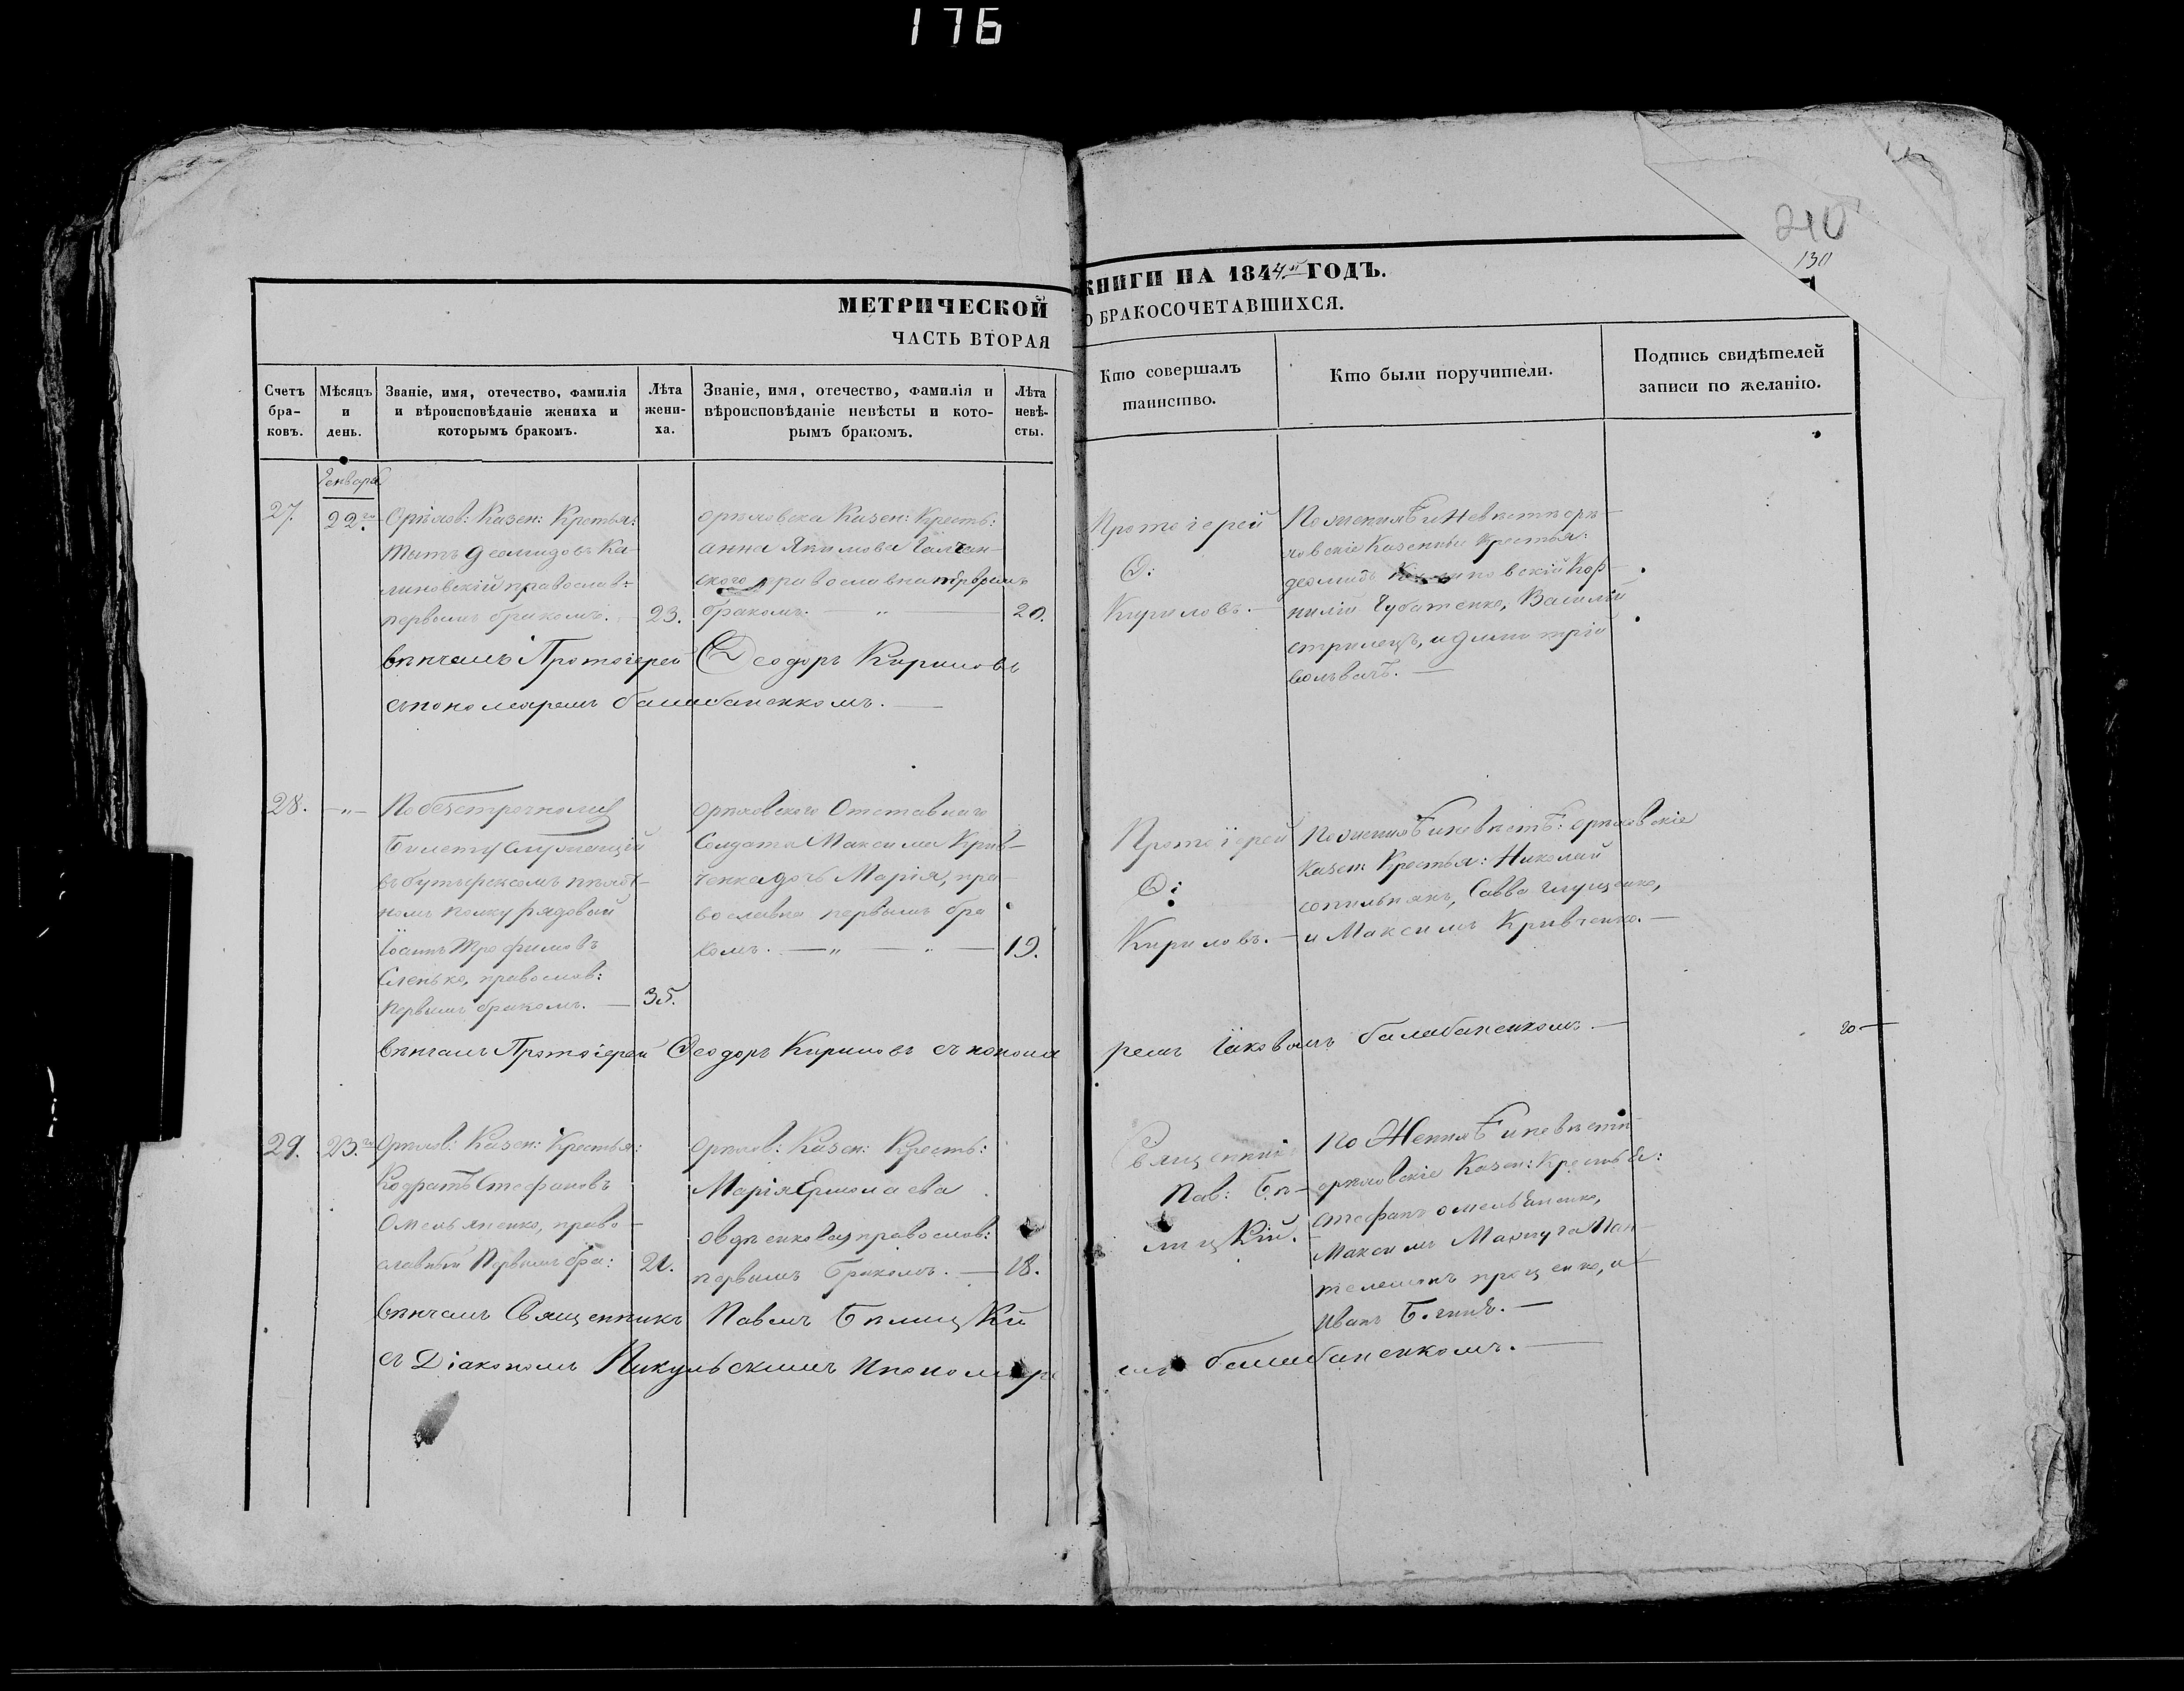 176
210
130
МЕТРИЧЕСКОЙ
ЧАСТЬ ВТОРАЯ
КНИГИ НА 1844й ГОДЪ.
О БРАКОСОЧЕТАВШИХСЯ.
Счетъ бра-ковъ.
Мѣсяцъ и день.
Званіе, имя, отечество, фамилія и вѣроисповѣданіе жениха и которымъ бракомъ.
Лѣта жени-ха.
Званіе, имя, отечество, фамилія и вѣроисповѣданіе невѣсты и кото-рымъ бракомъ.
Лѣта невѣ-сты.
Кто совершалъ таинство.
Кто были поручители.
Подпись свидѣтелей записи по желанію.
Генваря
27.
22го
Орѣхов: Казен: Крестья:
Деомидовъ Ка-
линовскій православ:
первымъ бракомъ.
23.
орѣховска Казен: Кресть:
анна Якимова
православна первымъ
бракомъ.
20.
Протоіерей
Ѳ:
Кириловъ.
По женихѣ и Невѣстѣ орѣ-
ховскіе Казенны Крестья:
деомидъ Калиновскій Кор-
нилій Губатенко, Василій
стрилецъ, и димитрій
вѣнчалъ Протоіерей Ѳеодоръ Кириловъ
съ пономаремъ балабаненкомъ.
28.
-„-
По безсрочному
Билету служащій
въ бутырскомъ пѣхот-
номъ полку рядовый
Іоаннъ Трофимовъ
православ:
первымъ бракомъ.
35.
орѣховского Отставного
Солдата Максима Крив-
ченка дочь Марія, пра-
вославна первымъ бра
комъ.
19.
Протоіерей
Ѳ:
Кириловъ.
По женихѣ и невѣстѣ: орѣховскіе
Казен: Крестья: Николай
сопильнякъ, Савва глущенко,
и Максимъ Кривченко.
вѣнчалъ Протоіерей Ѳеодоръ Кириловъ съ понома
ремъ Іаковомъ балабаненкомъ.
29.
23.го
Орѣхов: Казен: Крестья:
Кодратъ Стефановъ
Омельяненко, право-
славный Первымъ бра:
21.
Орѣхов: Казен: Кресть:
Марія Ермолаева
овдѣенкова православ:
первымъ бракомъ.
18.
Священник
Пав: Бѣ-
лицкій.
По Женихѣ и невѣстѣ
орѣховскіе Казен: Крестья:
стефанъ омельяненко,
Максимъ
проценко, и
Иванъ
вѣнчалъ Священникъ Павелъ Бѣлицкій
съ Діакономъ Никульскимъ и пономаре
мъ балабаненкомъ.